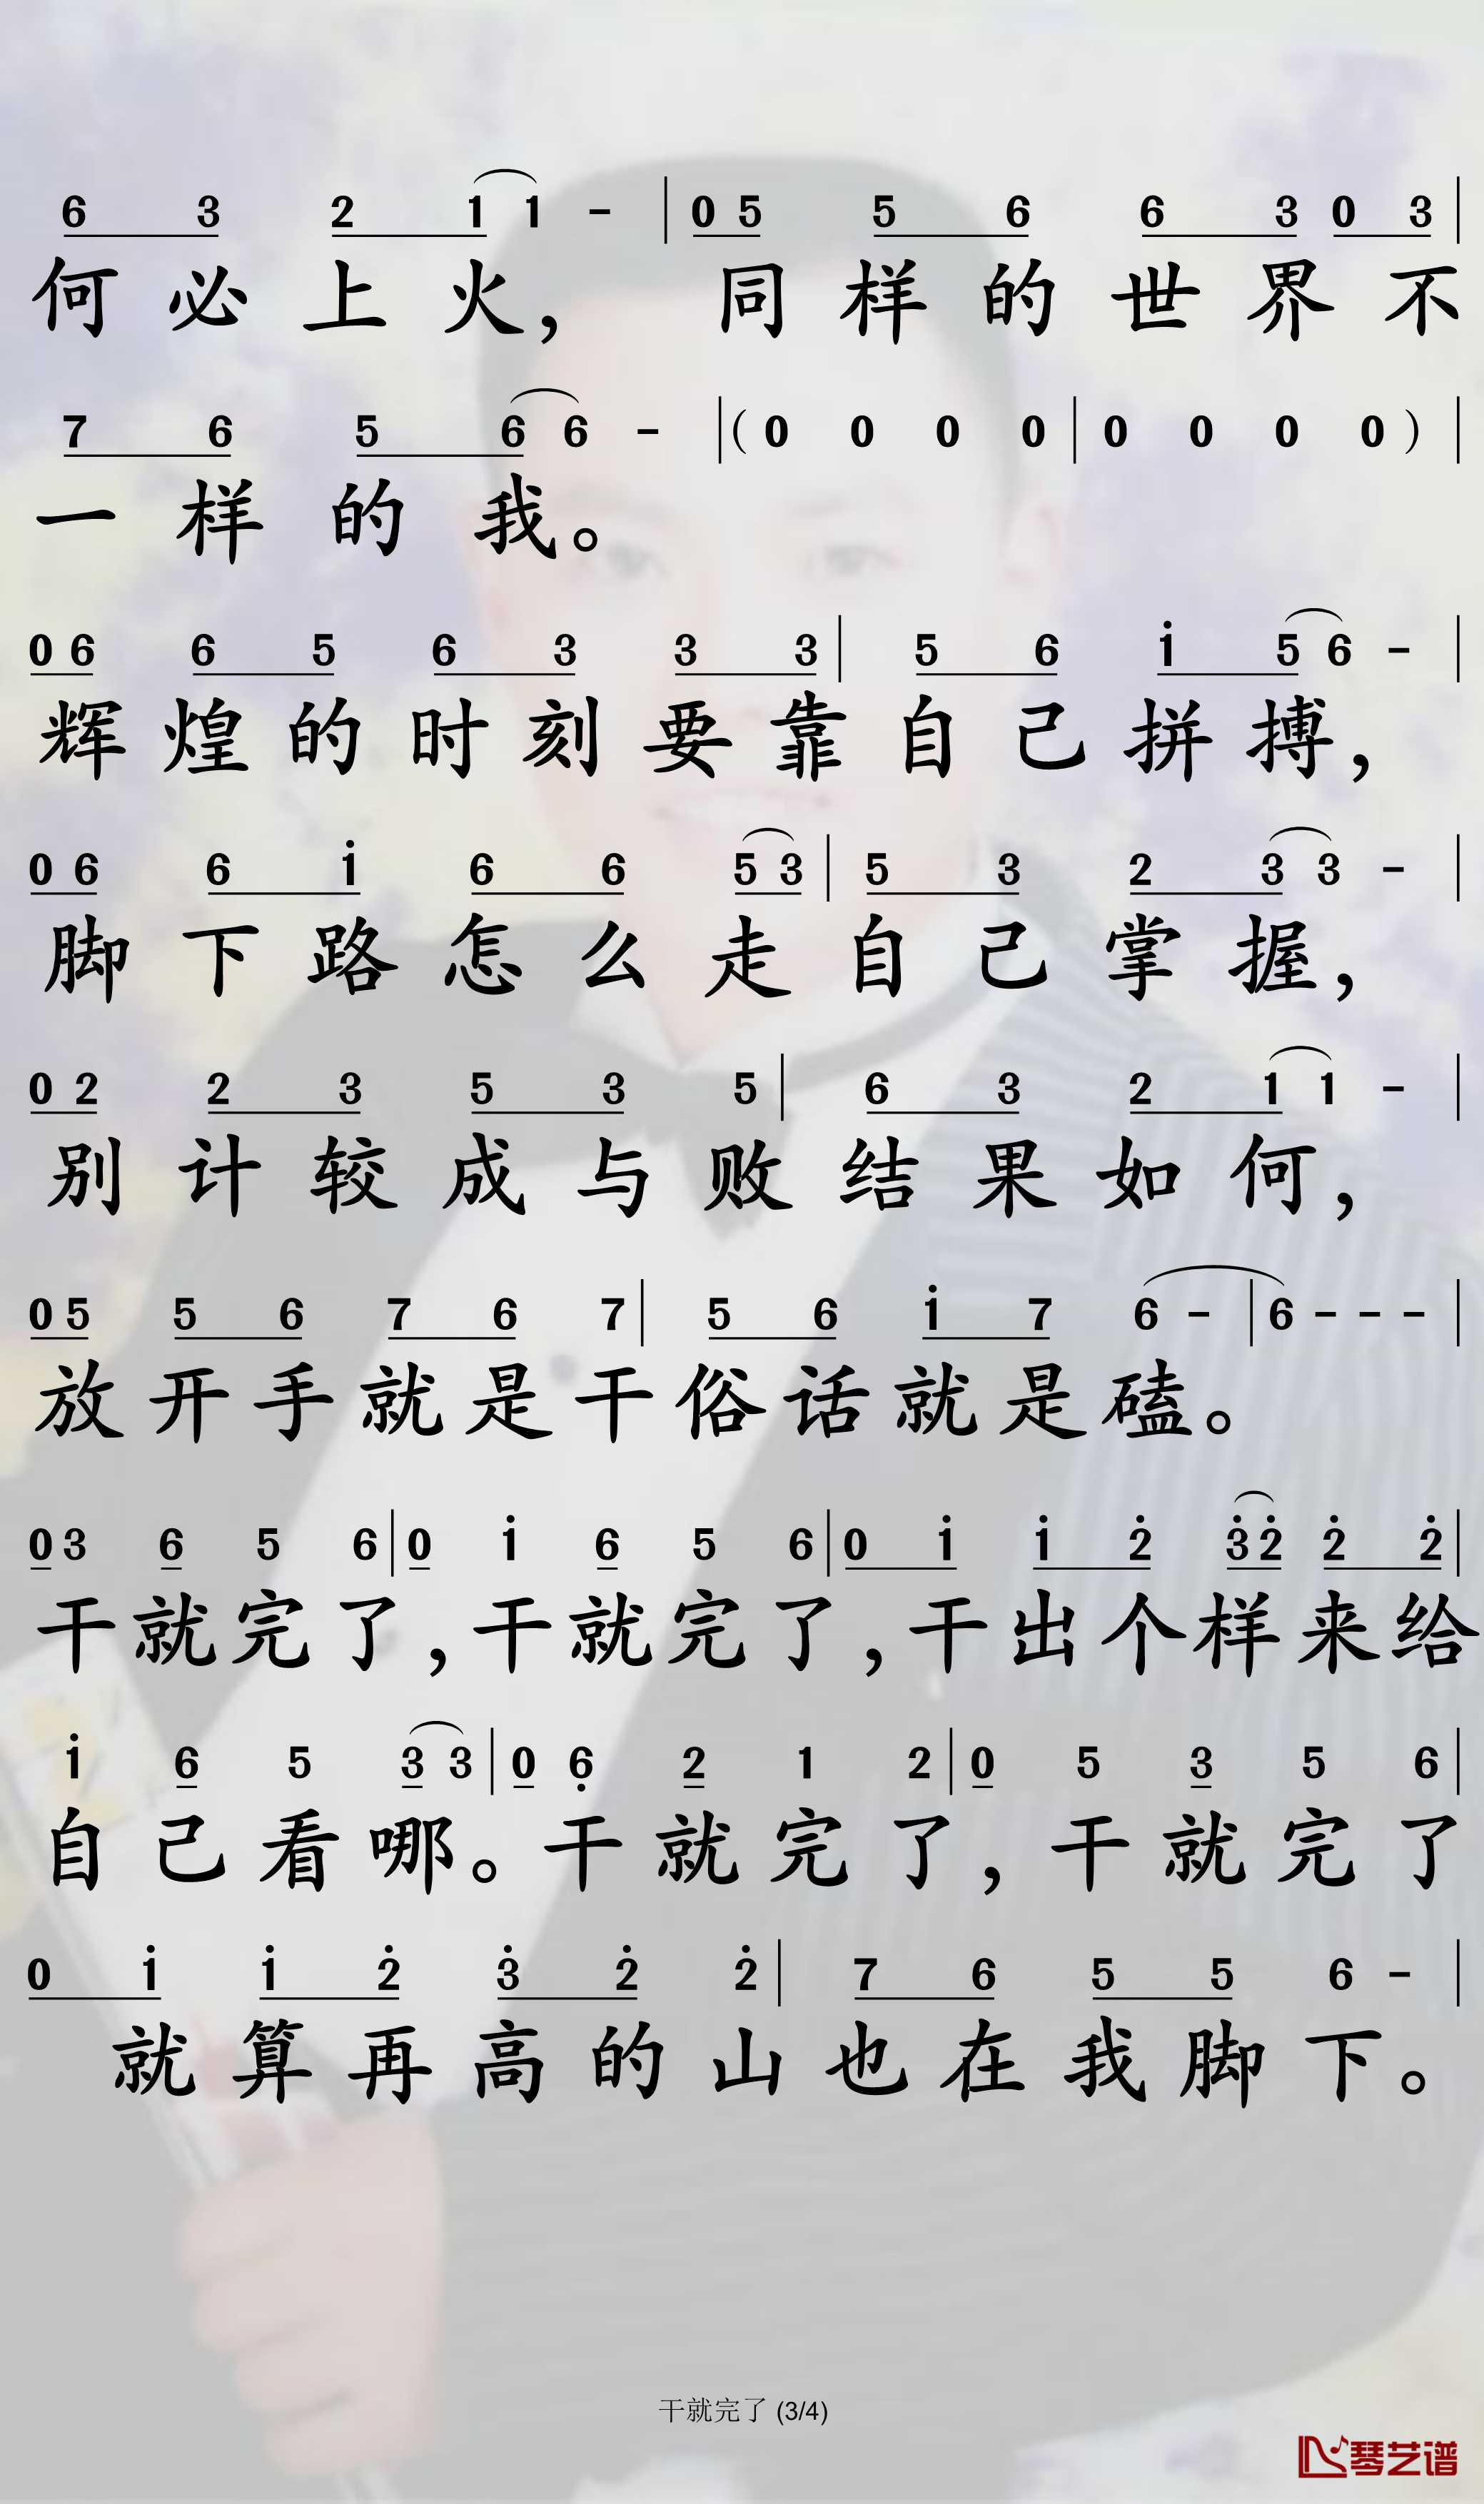 6 3 2 1 1 - | 0 5 5 6 6 3 0 3 |
何必上火， 同样的世界不
7 6 5 6 6 - | ( 0 0 0 0 | 0 0 0 0 ) |
一样的我。
0 6 6 5 6 3 3 3 | 5 6 i 5 6 - |
辉煌的时刻要靠自己拼搏，
0 6 6 i 6 6 5 3 | 5 3 2 3 3 - |
脚下路怎么走自己掌握，
0 2 2 3 5 3 5 | 6 3 2 1 1 - |
别计较成与败结果如何，
0 5 5 6 7 6 7 | 5 6 i 7 6 - | 6 - - - |
放开手就是干俗话就是磕。
0 3 6 5 6 | 0 i 6 5 6 | 0 i i 2̇ 3̇ 2̇ 2̇ 2̇ |
干就完了，干就完了，干出个样来给
i 6 5 3 3 | 0 6̣ 2 1 2 | 0 5 3 5 6 |
自己看哪。干就完了，干就完了
0 i i 2̇ 3̇ 2̇ 2̇ | 7 6 5 5 6 - |
就算再高的山也在我脚下。
干就完了 (3/4)
琴艺谱